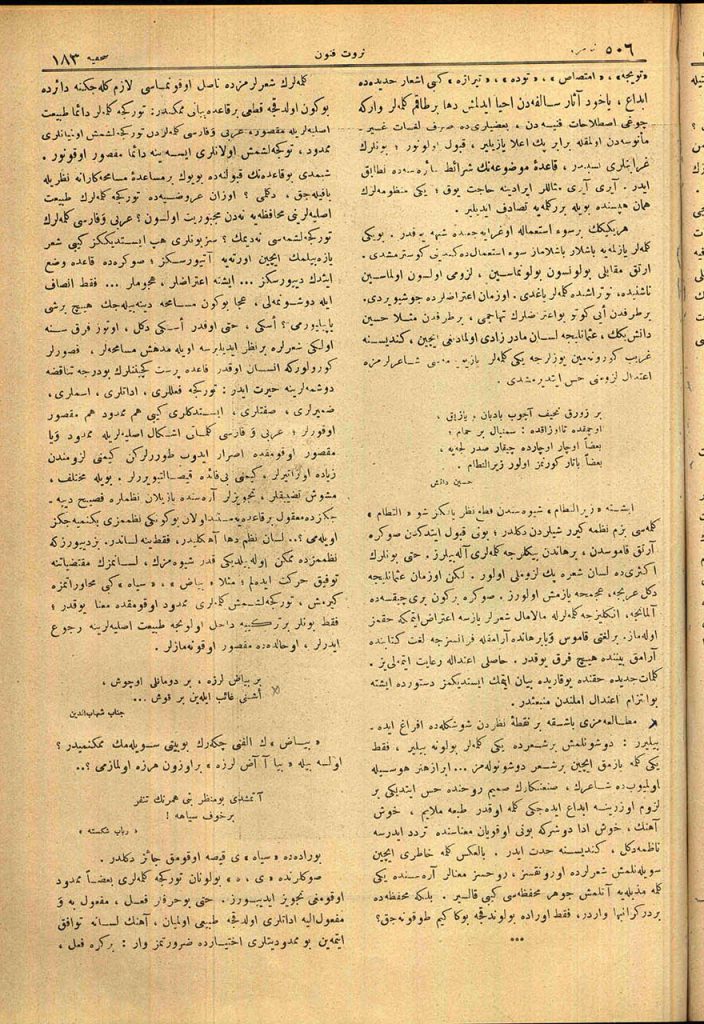 نومرو ٥٠٦
ثروت فنون
صحیفه ١٨٣
« توبجه » ، « امتصاص » ، « توده » ، « تیراژه » کبی اشعار جدیده‌ده
ابداع ، یاخود آثار سالفه‌دن احیا ایدلمش دها برطاقم کله‌لر وارکه
چوغی اصطلاحات فنیه‌دن ، بعضیلری‌ده صرف لغات غیر ـ
مأنوسه‌دن اولمقله برابر پك اعلا یازیلیر ، قبول اولونور ؛ بونلرك
غرابتلری ، قاعدهٔ موضوعه‌نك شرائط سائره‌سنه تطابق
ایدر . آیری آیری مثاللر ایرادینه حاجت یوق ؛ یکی منظومه‌لرك
همان هپسنده بویله بررکله‌یه تصادف ایدیلیر .
هریکیلك برسوء استعماله اوغرایه‌جغنده شبهه یوقدر . بویکی
کله‌لر یازلمه‌یه باشلار باشلاماز سوء استعمال‌ده کندینی کوسترمشدی .
آرتق مقابلی بولونسون بولونماسین ، لزومی اولسون اولماسین
ناشنیده ، نوتراشنده کله‌لر یاغدی . اوزمان اعتراضلرده جوشیوبردی .
برطرفدن آبی کوتو بواعتراضلرك تهاجمی ، برطرفدن مثلا حسین
دانش‌بكك ، عثمانلیجه لسان مادر زادی اولمادیغی ایچین ، کندیسنه
غریب کورونمه‌ین یوزلرجه یکی کله‌لر یازیویرمه‌سی شاعرلرمزه
اعتدال لزومنی حس ایتدیرمشدی .
بر زورق نحیف آچوب بادبان و یازیق ،
اوچمقده تااوزاقده : سمنبال بر حمام ؛
بعضاً اوچار اوچارده چیقار صدر لجه‌یه ،
بعضاً باتار کورنمز اولور زیرالتطام .
حسین دانش
ایشته « زیرالتطام » شیوه‌سندن قطع نظر یالکز شو « التطام »
کله‌سی بزم نظمه کیرر شیلردن دکلدر ؛ بونی قبول ایتدکدن صوکره
آرتق قاموسدن ، برهاندن بیکلرجه کله‌لری آله‌بیلیرز . حتی بونلرك
اکثری‌ده لسان شعره پك لزوملی اولور . لکن اوزمان عثمانلیجه
دکل عربجه ، عجمجه یازمش اولورز . صوکره برکون بری چیقسه‌ده
آلمانجه ، انکلیزجه کله‌لرله مالامال شعرلر یازسه اعتراض‌ایتمکه حقمز
اوله‌ماز. برلغتی قاموس ویابرهانده آرامقله فرانسزجه لغت کتابنده
آرامق بیننده هیچ فرق یوقدر . حاصلی اعتداله رعایت ایتمه‌لی‌یز .
کلمات جدیده حقنده یوقاریده بیان ایتمك ایستدیکمز دستورده ایشته
بوالتزام اعتدال املندن منبعثدر .
مطالعه‌مزی باشقه بر نقطهٔ نظردن شوشکله‌ده افراغ ایده ـ
بیلیرز : دوشونلمش برشعرده یکی کله‌لر بولونه بیلیر ، فقط
یکی کله یازمق ایچین برشعر دوشونوله‌مز ... ابرازهنر هوسیله
اولمیوب‌ده شاعرك ، صنعتکارك صمیم روحنده حس ایتدیکی بر
لزوم اوزرینه ابداع ایده‌جکی کله اوقدر طبعه ملایم ، خوش
آهنك ، خوش ادا دوشرکه بونی اوقویان معناسنده تردد ایدرسه
ناظمه‌دکل ، کندیسنه حدت ایدر . بالعکس کله خاطری ایچین
سویله‌نلمش شعرلرده اورونقسز ، روحسز معنالر آره‌سنده یکی
کله مذبله‌یه آتلمش جوهر محفظه‌سی کبی قالیر . بلکه محفظه‌ده
بردرکرانبها واردر، فقط اوراده بولوندقجه بوکا کیم طوقونه‌جق؟
***
کله‌لرك شعرلرمزده ناصل اوقونماسی لازم کله‌جکنه دائرده
بوکون اولدقجه قطعی برقاعده بیانی ممکندر: تورکجه کله‌لر دائما طبیعت
اصلیه‌لریله مقصور ، عربی وفارسی کله‌لردن تورکجه‌لشمش اولمایانلری
ممدود ، تورکجه‌لشمش اولانلری ایسه‌ینه دائما مقصور اوقونور .
شیمدی بوقاعده‌نك قبولنده‌ده بویوك برمساعدهٔ مسامحه‌کارانه نظریله
باقیله‌جق ، دکلمی ؟ اوزان عروضیه‌ده تورکجه کله‌لرك طبیعت
اصلیه‌لرینی محافظه‌یه نه‌دن مجبوریت اولسون ؟ عربی وفارسی کله‌لرك
تورکجه‌لشمه‌سی نه‌دیمك ؟ سزبونلری هپ ایستدیککز کبی شعر
یازه‌بیلمك ایچین اورته‌یه آتیورسکز ؛ صوکره‌ده قاعده وضع
ایتدك دییورسکز ... ایشته اعتراضلر ، هجوملر ... فقط انصاف
ایله دوشونمه‌لی ، عجبا بوکون مسامحه دینه‌بیله‌جك هیچ برشی
یاپیلیورمی ؟ اسکی ، حتی اوقدر اسکی دکل ، اوتوز قرق سنه
اولکی شعرلره برنظر ایدیلیرسه اویله مدهش مسامحه‌لر ، قصورلر
کورولورکه انسان اوقدر قاعده پرست کچینلرك بودرجه تناقضه
دوشمه‌لرینه حیرت ایدر : تورکجه فعللری ، اداتلری ، اسملری ،
ضمیرلری ، صفتلری ، ایستدکلری کبی هم ممدود هم مقصور
اوقورلر ؛ عربی و فارسی کلماتی اشکال اصلیه‌لریله ممدود ویا
مقصور اوقومقده اصرار ایدوب طوررلرکن کیمنی لزومندن
زیاده اوزاتیرلر ، کیمنی بی‌فائده قیصالتیویررلر . بویله مختلف ،
مشوش تضییقلر ، تجویزلر آره‌سنده یازیلان نظملره فصیح دییه ـ
جکزده معقول برقاعده‌یه مستند اولان بوکونکی نظممزی بکنمیه‌جکز
اویله‌می ؟.. لسان نظم دها آهنکلیدر ، فقط ینه لساندر. بزدییورزکه
نظممزده ممکن اوله‌بیلدیکی قدر شیوه‌مزك ، لسانمزك مقتضیاتنه
توفیق حرکت ایده‌لم ؛ مثلا « بیاض » ، « سیاه » کبی محاوراتمزه
کیرمش ، تورکجه‌لشمش کله‌لری ممدود اوقومقده معنا یوقدر ؛
فقط بونلر برترکیبه داخل اولونجه طبیعت اصلیه‌لرینه رجوع
ایدرلر ، اوحالده‌ده مقصور اوقونه‌مازلر .
بر بیاض لرزه ، بر دومانلی اوچوش ،
اشنی غائب ایله‌ین بر قوش ...
جناب شهاب‌الدین
« بیاض » ك الفنی چکه‌رك بوبیتی سویله‌مك ممکنمیدر ؟
اولسه بیله « بیا آآض لرزه » براوزون هرزه اولمازمی ؟..
آتمشدی بومنظر بنی همرنك تنفر
برخوف سیاهه !
« رباب شکسته »
بوراده‌ده « سیاه » ی قیصه اوقومق جائز دکلدر .
صوکلرنده « ی ، ه » بولونان تورکجه کله‌لری بعضاً ممدود
اوقومغی تجویز ایدییورز . حتی بوحرفلر فعل ، مفعول به و
مفعول‌الیه اداتلری اولدقجه طبیعی اولمیان ، آهنك لسانه توافق
ایتمه‌ین بوممدودیتلری اختیارده ضرورتمز وار : برکره فعل ،